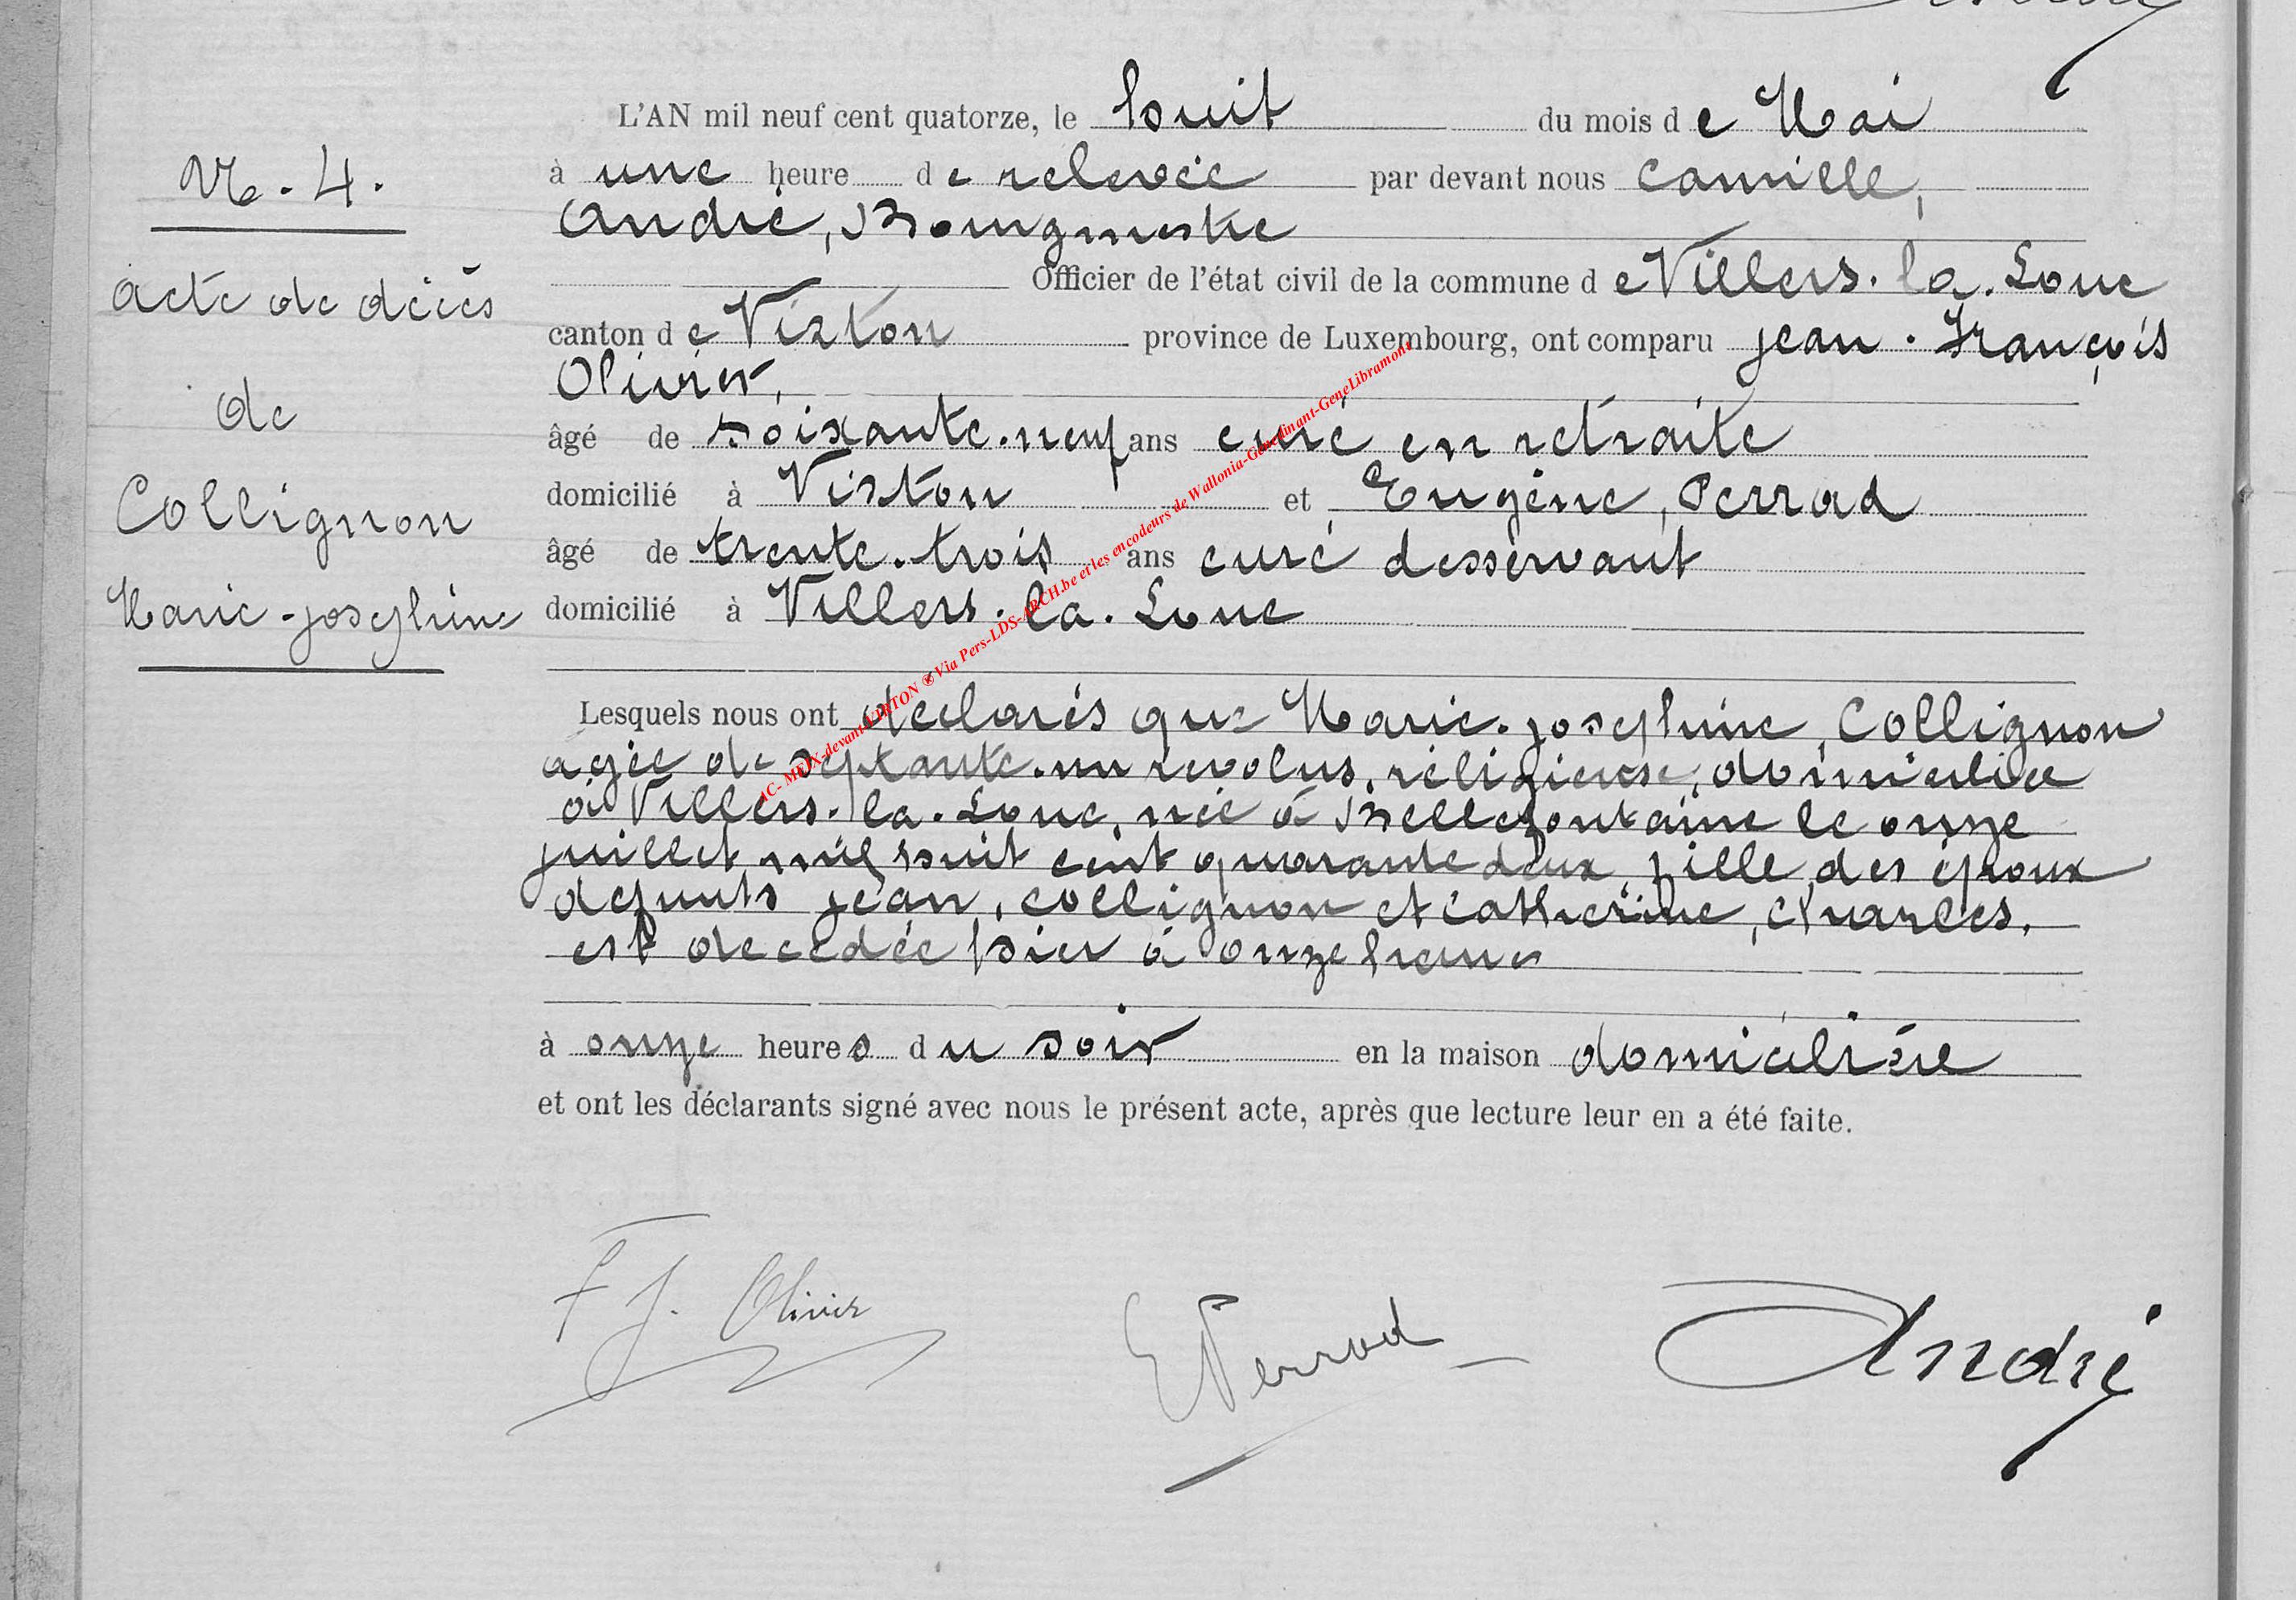 N. 4.
Acte de décès
de
Collignon
Marie-josephine
L'AN mil neuf cent quatorze, le huit du mois de Mai
à une heure de relevée par devant nous Camille,
André, Bourgmestre
Officier de l'état civil de la commune de Villers-la-Loue
canton de Virton province de Luxembourg, ont comparu jean-François
Olivier,
âgé de soixante-neuf ans curé en retraite
domicilié à Virton et Eugène, Perrad
âgé de trente-trois ans curé desservant
domicilié à Villers-la-Loue
Lesquels nous ont declarés que Marie-josephine, Collignon
agée de septante-un revolus, réligieuse, domiciliée
à Villers-la-Loue, née à Bellefontaine le onze
juillet mil huit cent quarante deux fille des époux
defunts jean, Collignon et Catherine, Charles.
est decedée hier à onze heures
à onze heures du soir en la maison domicilière
et ont les déclarants signé avec nous le présent acte, après que lecture leur en a été faite.
F J. Olivier
E Perrad
André
AC- MEIX-devant-VIRTON ® Via Pers-LDS-ARCH.be et les encodeurs de Wallonia-Genedinant-GeneLibramont